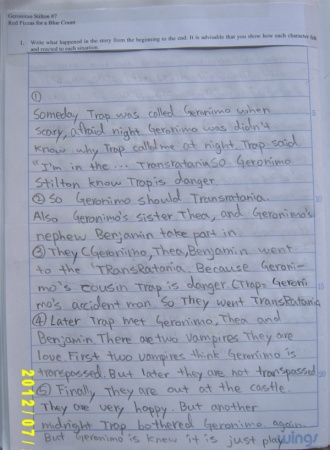 Geronimo Stilton #7
Red Pizzas for a Blue Count
1. Write what happened in the story from the beginning to the end. It is advisable that you show how each character felt
and reacted to each situation.
①
Someday Trap was called Geronimo when
scary, afraid night Geronimo was didn't
know why Trap called me at night. Trap said
"I'm in the ... Transratania so Geronimo
Stilton know Trap is danger
② So Geronimo should Transratania.
Also Geronimo's sister Thea, and Geronimo's
nephew Benjamin take part in.
③ They (Geronimo, Thea, Benjamin went
to the TRansRatania. Because Geroni-
mo's cousin Trap is danger (Trap: Geroni
mo's accident man. So They went TransRatania
④ Later Trap met Geronimo, Thea and
Benjamin. There are two vampires They are
love First two vampires think Geronimo is
trespassed. But later they are not transpassed
⑤ Finally They are out at the castle.
They are very happy. But another
midnight Trap bothered Geronimo again.
But Geronimo is knew it is just play
wings
2012/07/
5
10
15
20